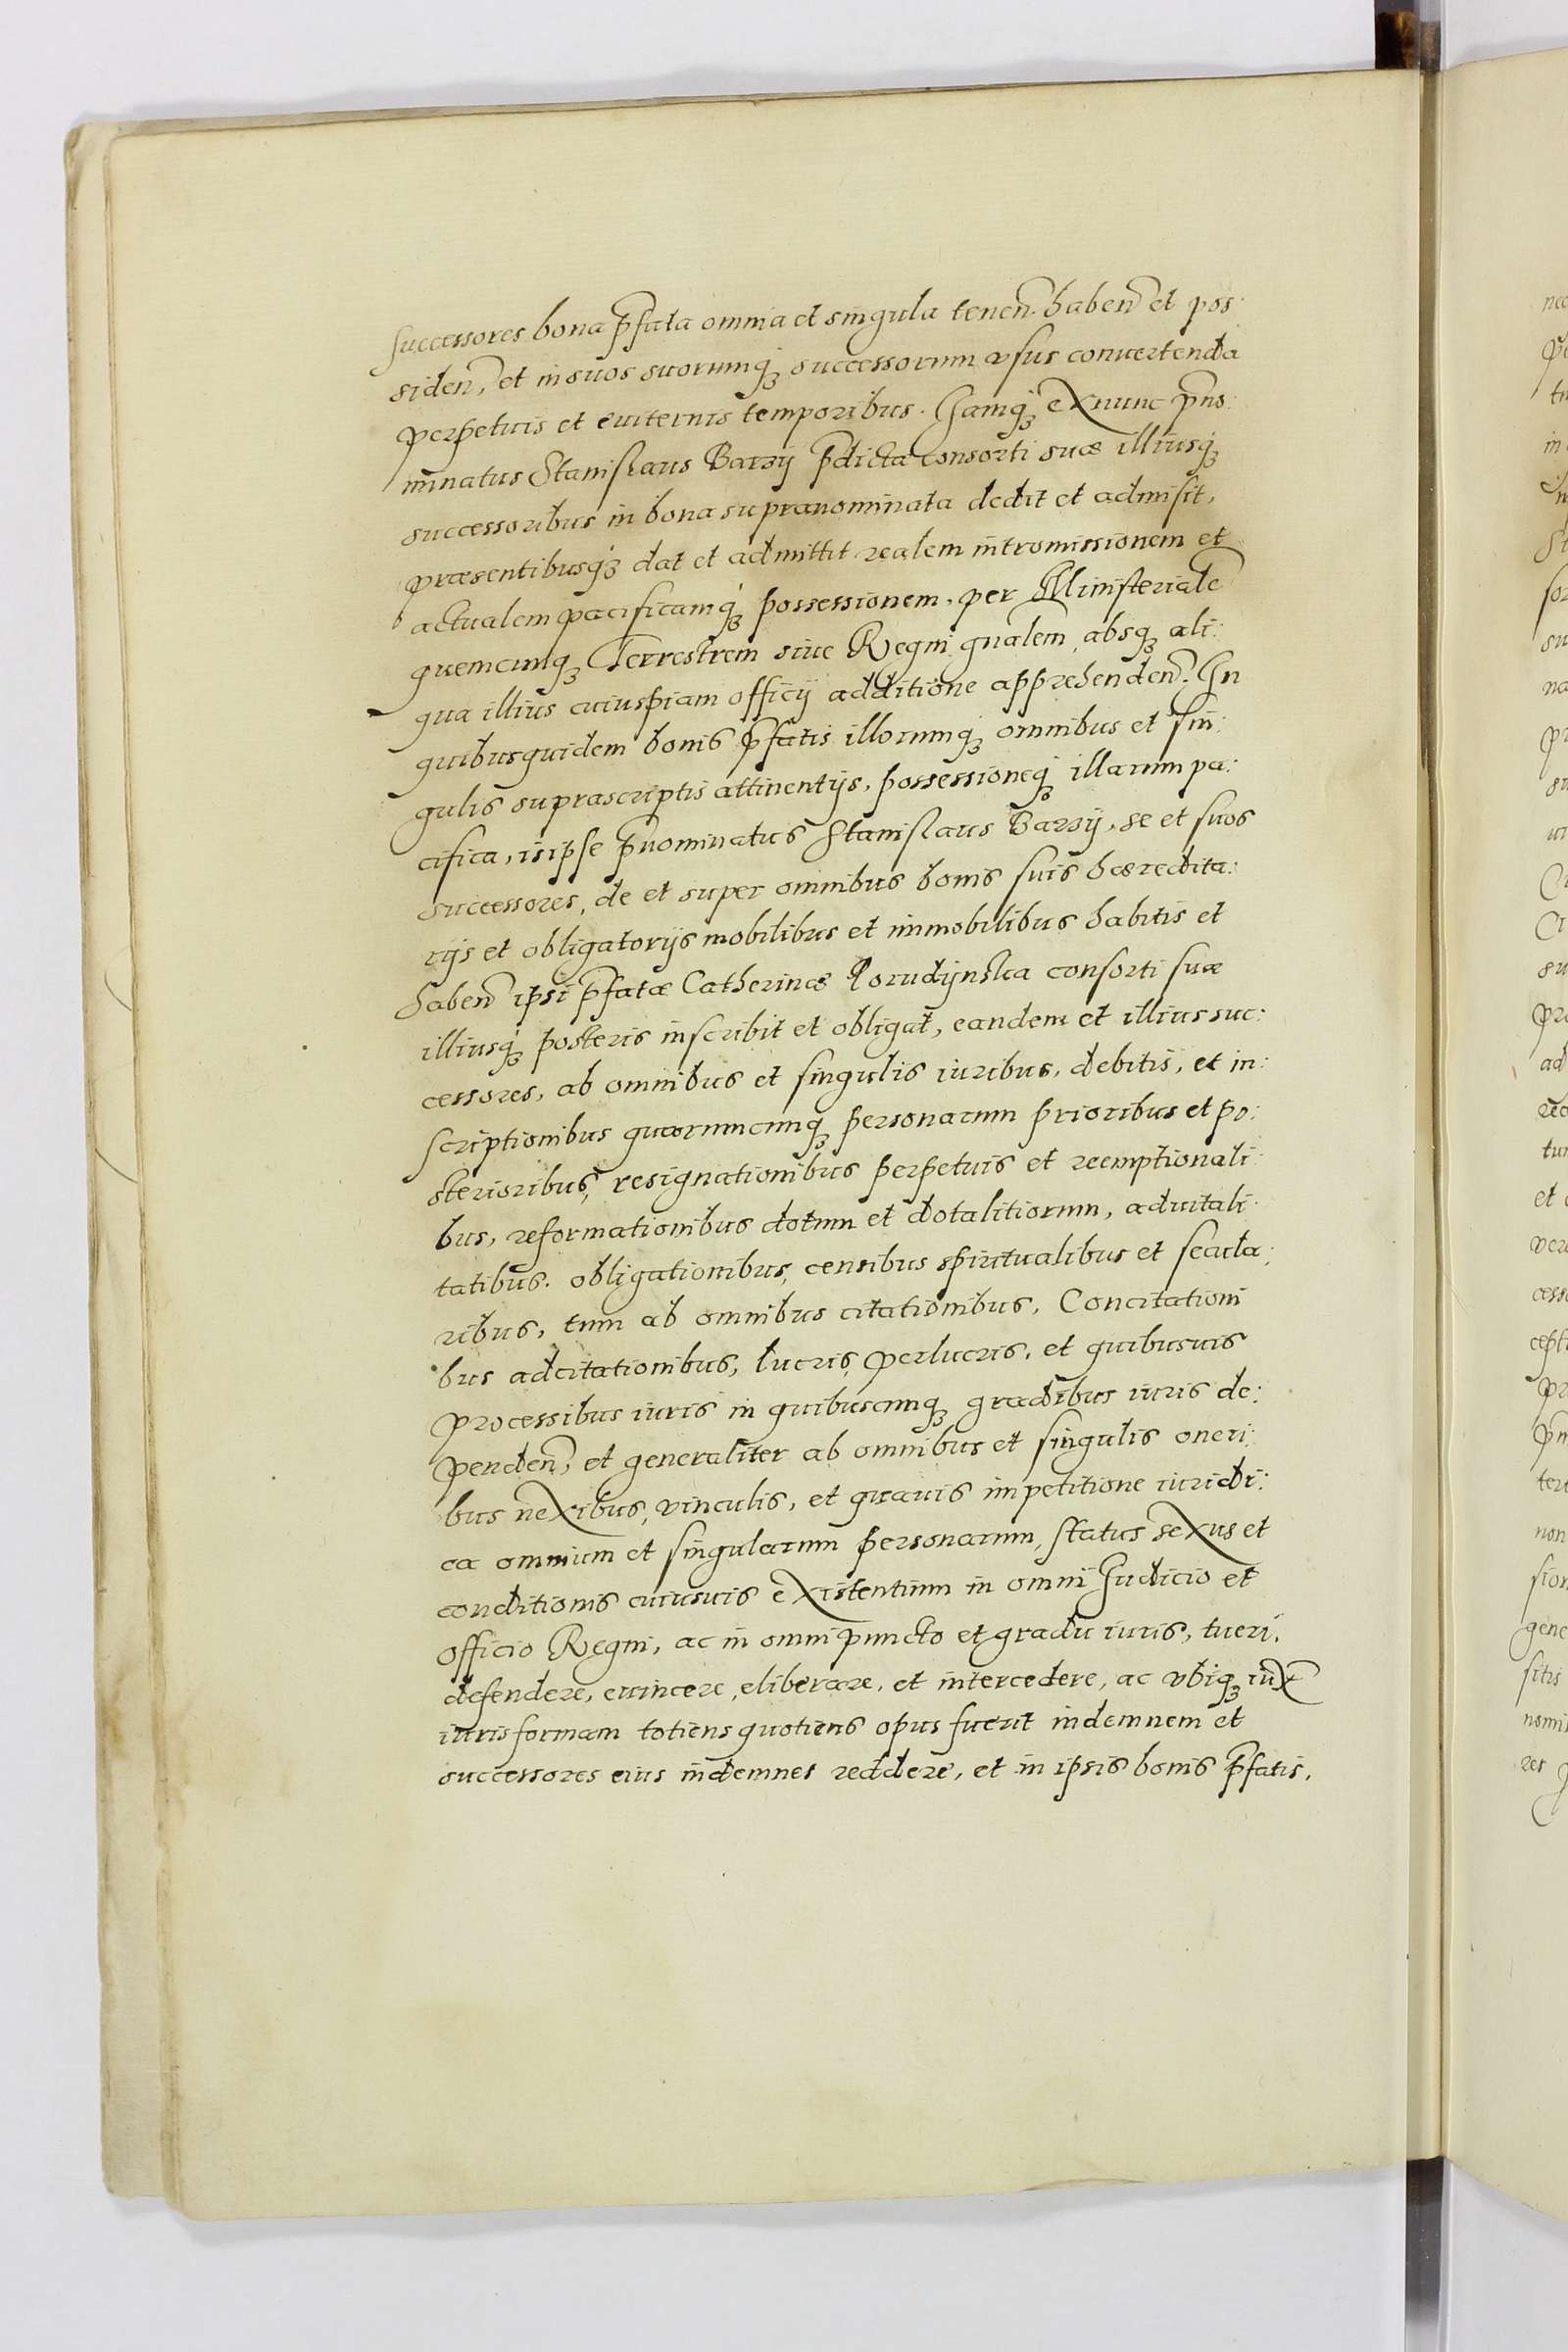 successores bona pfata omnia et singula tenen. haben et pos
siden, et in suos suorumq successorum vsus convertenda
perpetuis et euiternis temporibus. Iamq ex nunc pno:
minatus Stanislaus Barzy pdicta consorti suæ illiusq
successoribus in bona supranominata dedit et admisit,
præsentibusq dat et admittit realem intromissionem et
actualem pacificamq possessionem, per Ministeriale
quemcunq Terrestrem siue Regni gnalem, absq ali:
qua illius cuiuspiam officij additione apprehenden. In
quibusquidem bonis pfatis illorumq omnibus et sin:
gulis suprascriptis attinentijs, possessioneq illarum pa:
cifica, is ipse pnominatus Stanislaus Barzy, se et suos
successores, de et super omnibus bonis suis hæredita:
rijs et obligatorijs mobilibus et immobilibus habitis et
haben ipsi pfatæ Catherinæ Porudynska consorti suæ
illiusq posteris inscribit et obligat, eandem et illius suc:
cessores, ab omnibus et singulis iuribus, debitis, et in:
scriptionibus quarumcunq personarum prioribus et po:
sterioribus, resignationibus perpetuis et reemptionali
bus, reformationibus dotum et dotalitiorum, aduitali
tatibus. obligationibus, censibus spiritualibus et secula:
ribus, tum ab omnibus citationibus, Concitationi
bus adcitationibus, lucris, perlucris, et quibusuis
processibus iuris in quibuscunq gradibus iuris de:
penden, et generaliter ab omnibus et singulis oneri:
bus nexibus, vinculis, et quauis impetitione iuridi:
ca omnium et singularum personarum, status sexus et
conditionis cuiusuis existentium in omni Iudicio et
officio Regni, ac in omni puncto et gradu iuris, tueri,
defendere, euincere, eliberare, et intercedere, ac vbiq iux
iuris formam totiens quotiens opus fuerit indemnem et
successores eius indemnes reddere, et in ipsis bonis pfatis,